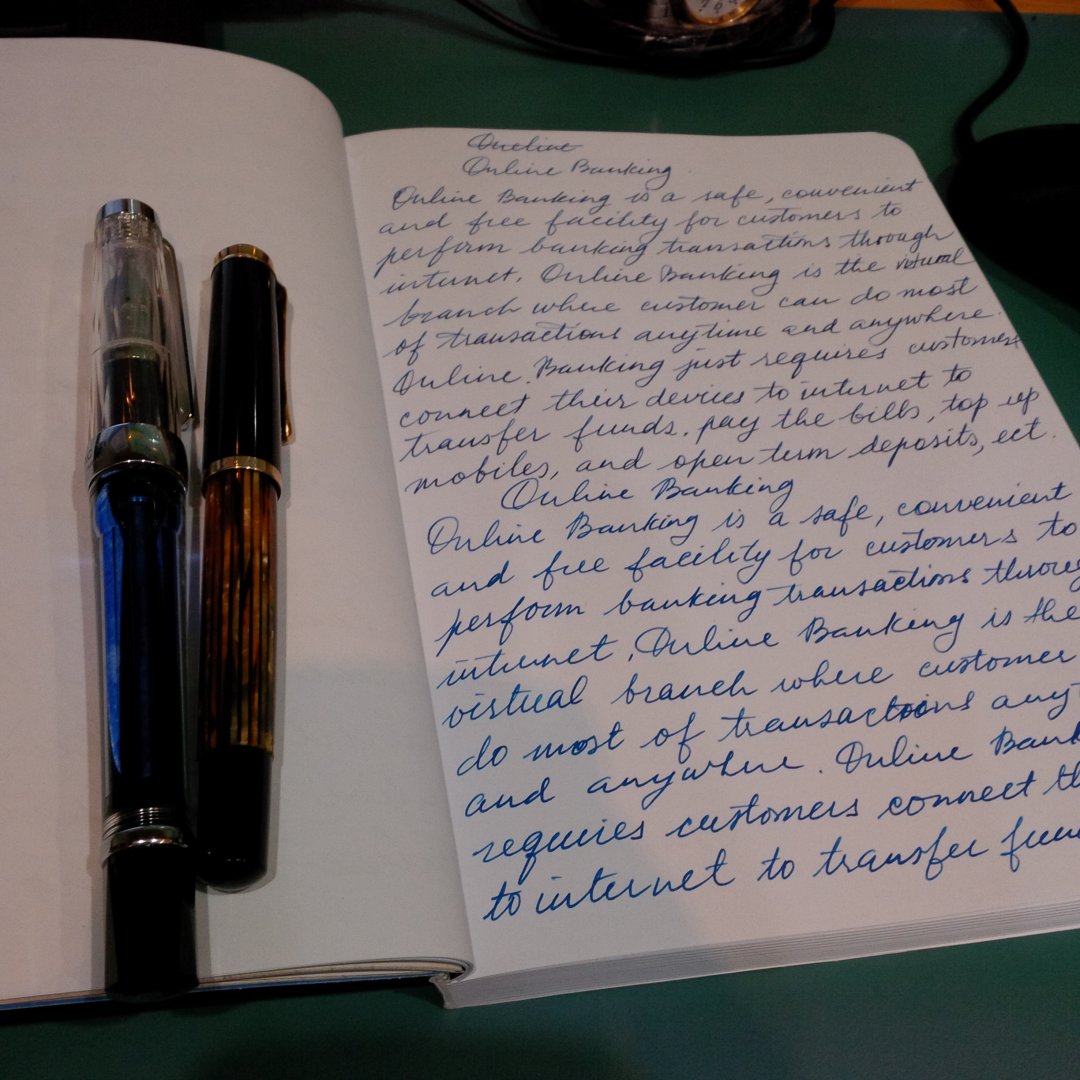 Oneline
Online Banking
Online Banking is a safe, convenient
and free facility for customers to
perform banking transactions through
internet. Online Banking is the virtual
branch where customer can do most
of transactions anytime and anywhere.
Online Banking just requires customers
connect their devices to internet to
transfer funds, pay the bills, top up
mobiles, and open term deposits, ect.
Online Banking
Online Banking is a safe, convenient
and free facility for customers to
perform banking transactions throug
internet. Online Banking is the
virtual branch where customer
do most of transactions any
and anywhere. Online Bank
requires customers connect th
to internet to transfer fun